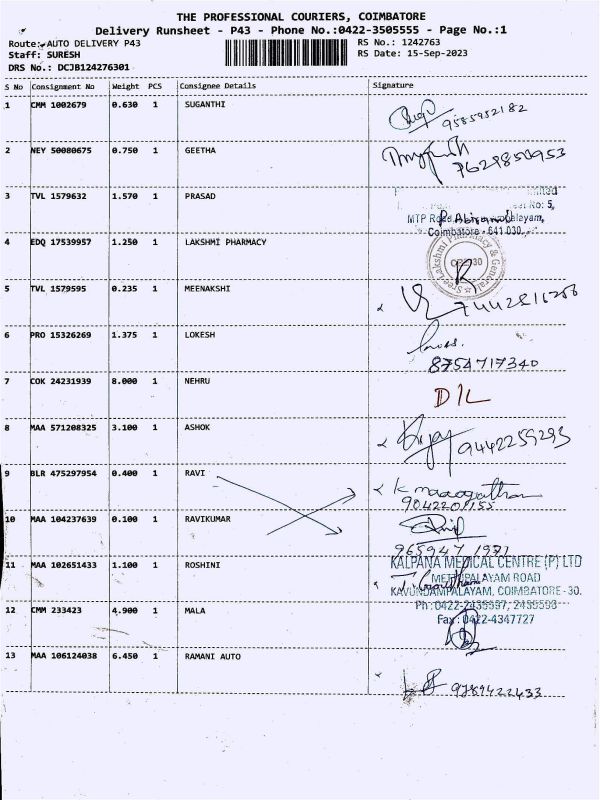 THE PROFESSIONAL COURIERS, COIMBATORE
Delivery Runsheet - P43 - Phone No.:0422-3505555 - Page No.:1
Route: AUTO DELIVERY P43 RS No.: 1242763
Staff: SURESH RS Date: 15-Sep-2023
DRS No.: DCJB124276301
S No Consignment No Weight PCS Consignee Details Signature
1 CMM 1002679 0.630 1 SUGANTHI
9585952182
2 NEY 50080675 0.750 1 GEETHA
7629850953
3 TVL 1579632 1.570 1 PRASAD
No: 5,
MTP Road,
Coimbatore - 641 030.
4 EDQ 17539957 1.250 1 LAKSHMI PHARMACY
Sree Lakshmi Pharmacy & General
5 TVL 1579595 0.235 1 MEENAKSHI
6 PRO 15326269 1.375 1 LOKESH
8754717340
7 COK 24231939 8.000 1 NEHRU
D/L
8 MAA 571208325 3.100 1 ASHOK
9442259293
9 BLR 475297954 0.400 1 RAVI
9042201155
10 MAA 104237639 0.100 1 RAVIKUMAR
965947 1971
11 MAA 102651433 1.100 1 ROSHINI
KALPANA MEDICAL CENTRE (P) LTD
METTUPALAYAM ROAD
KAVUNDAMPALAYAM, COIMBATORE - 30.
12 CMM 233423 4.900 1 MALA
Ph: 0422-2435597, 2435598
Fax: 0422-4347727
13 MAA 106124038 6.450 1 RAMANI AUTO
9789422433